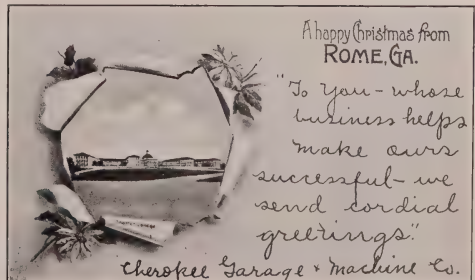 A happy Christmas from
ROME, GA.
"To you - whose
business helps
make ours
successful - we
send cordial
greetings."
Cherokee Garage & Machine Co.